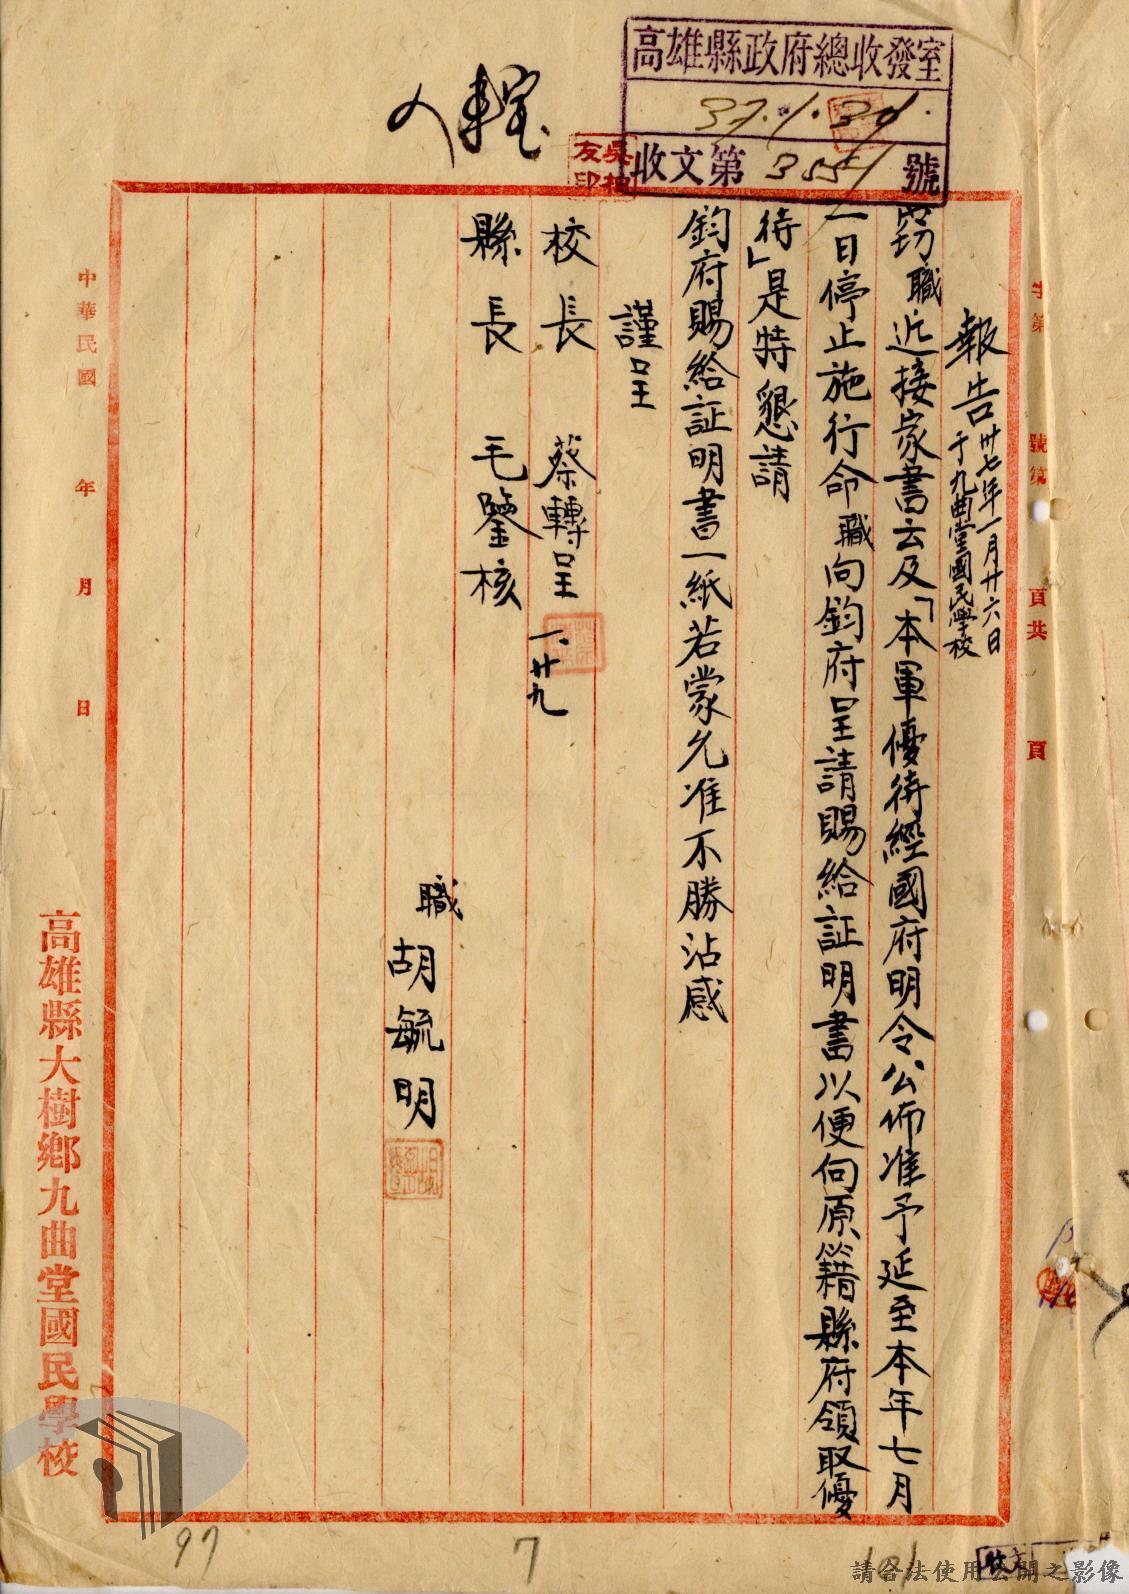 高雄縣政府總收發室
37.1.30.
收文第3551號
字第 號第 頁共 頁
報告 卅七年一月廿六日
于九曲堂國民學校
竊職近接家書云及「本軍優待經國府明令公佈准予延至本年七月
一日停止施行命職向鈞府呈請賜給証明書以便向原籍縣府領取優
待」是特懇請
鈞府賜給証明書一紙若蒙允准不勝沾感
謹呈
校長 蔡轉呈 一.廿九
縣長 毛鑒核
職 胡毓明
中華民國 年 月 日
高雄縣大樹鄉九曲堂國民學校
97
7
181
收文
請合法使用公開之影像